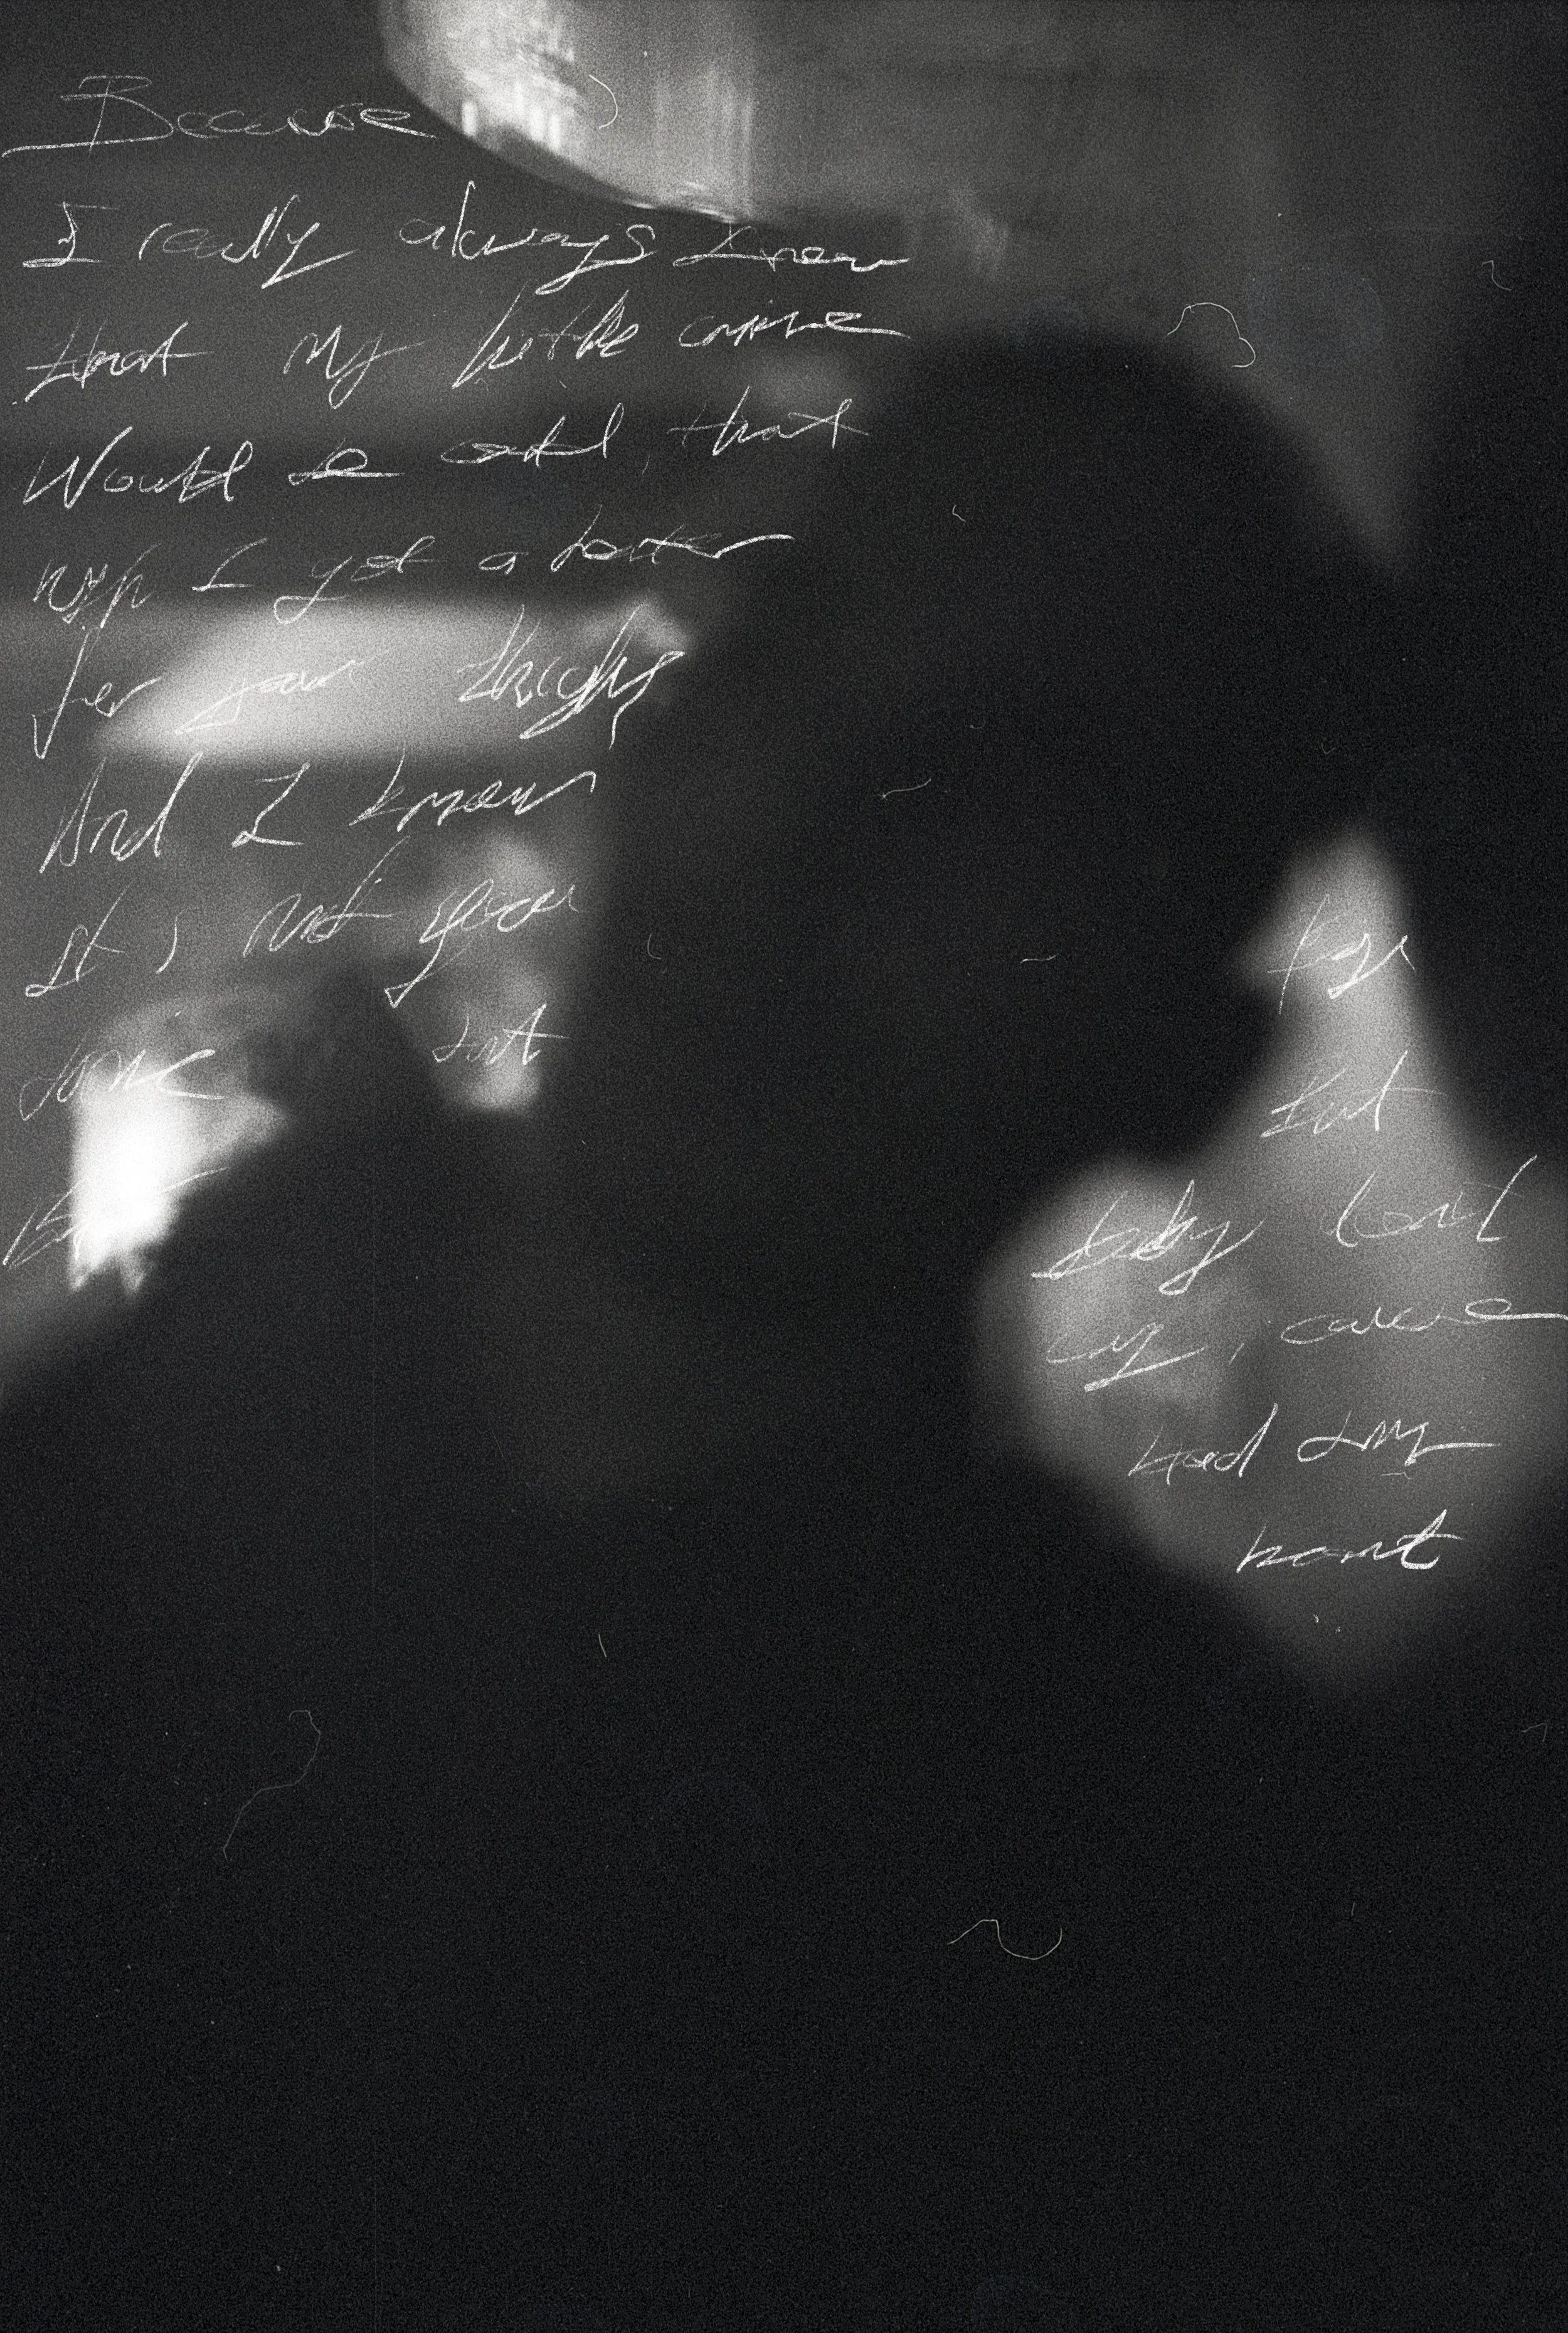 Because
I really always knew
that my little crime
Would be cold that
why I got a heater
for your thighs
And I know
It's not your
time but
for
but
baby don't
cry, cause
had my
heart